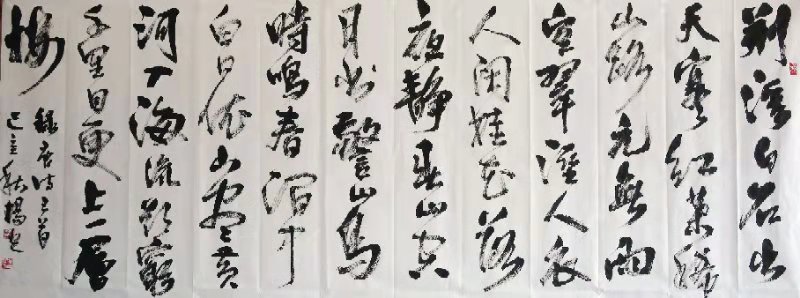 荆溪白石出
天寒红葉稀
山路元無雨
空翠濕人衣
人闲桂花落
夜静春山空
月出驚山鳥
時鳴春澗中
白日依山尽黄
河入海流欲窮
千里目更上一層
楼
録唐诗三首
己亥秋楊